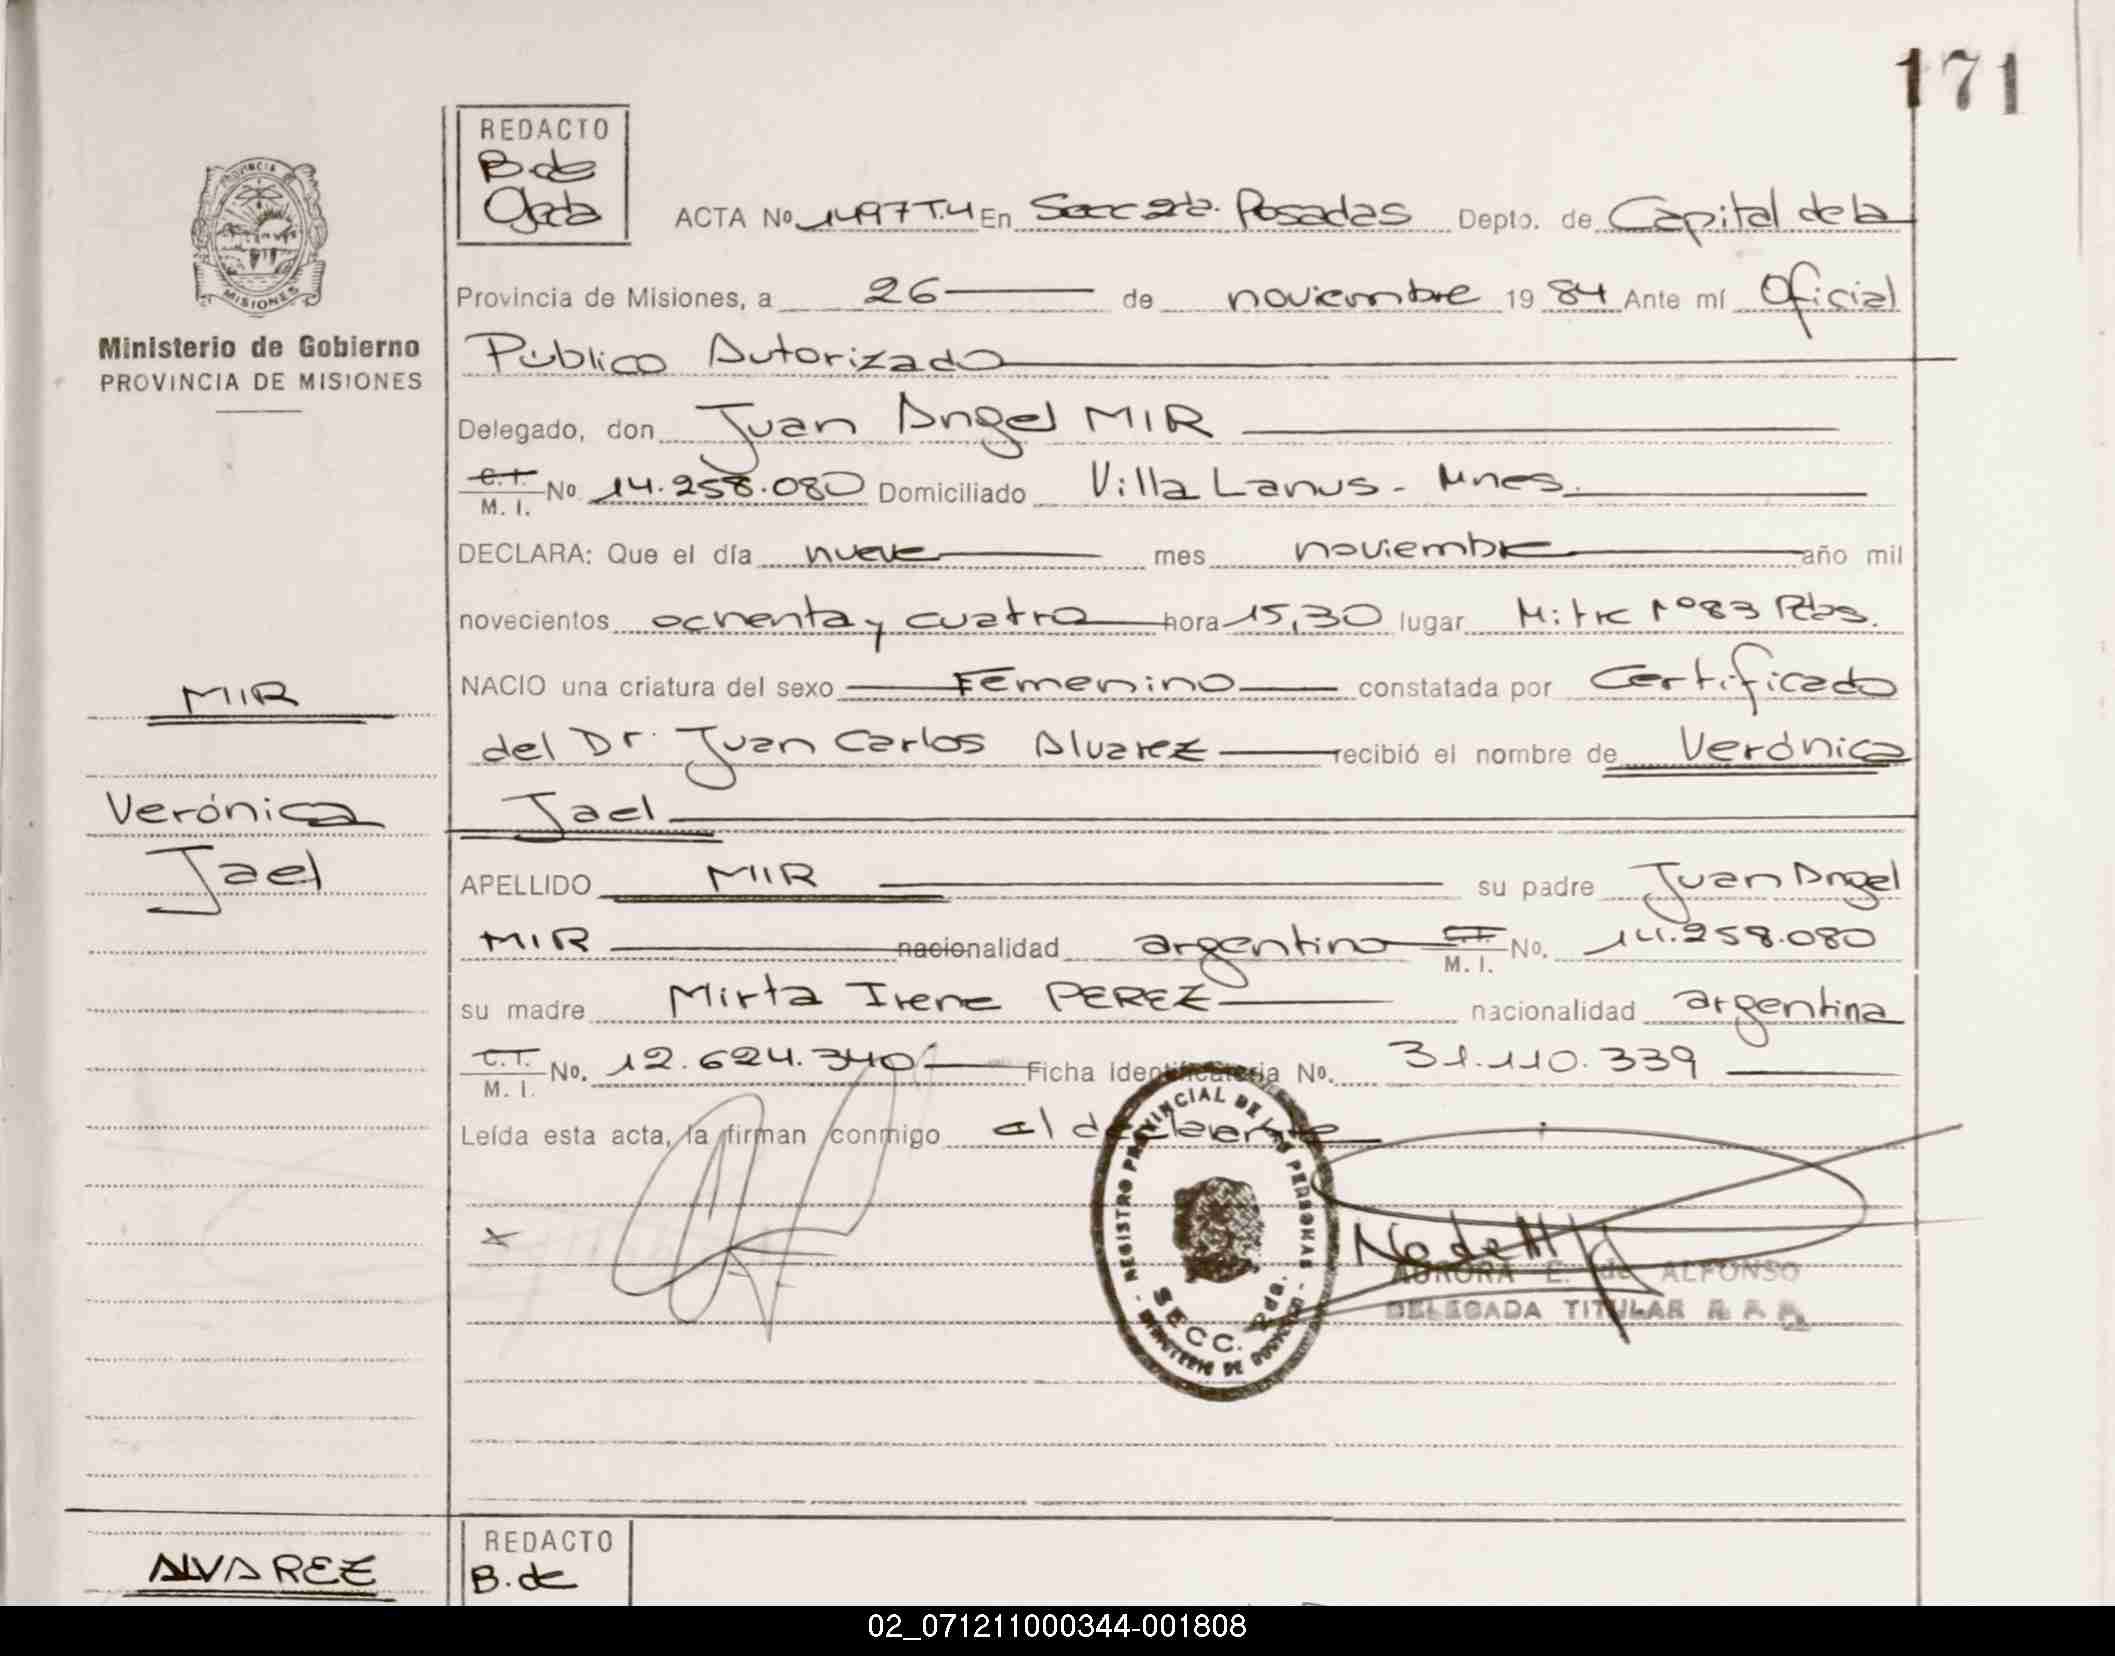 171
REDACTO
B. de
Ojeda
ACTA Nº 1497 T.4 En Secc 2da. Posadas Depto. de Capital de la
PROVINCIA
MISIONES
Provincia de Misiones, a 26 de noviembre 19 84 Ante mí Oficial
Ministerio de Gobierno
PROVINCIA DE MISIONES
Público Autorizado
Delegado, don Juan Angel MIR
C.I. M. I. No 14.258.080 Domiciliado Villa Lanus - Mnes.
DECLARA: Que el día nueve mes noviembre año mil
novecientos ochenta y cuatro hora 15,30 lugar Mitre Nº 83 Pdas.
MIR
NACIO una criatura del sexo Femenino constatada por Certificado
del Dr. Juan Carlos Alvarez recibió el nombre de Verónica
Verónica
Jael
Jael
APELLIDO MIR su padre Juan Angel
MIR nacionalidad argentino C.I. M. I. No. 14.258.080
su madre Mirta Irene PEREZ nacionalidad argentina
C.I. M. I. No. 12.624.340 Ficha Identificatoria No. 31.110.339
Leída esta acta, la firman conmigo el declarante
REGISTRO PROVINCIAL DE LAS PERSONAS - MINISTERIO DE GOBIERNO -
SECC. 2da.
AURORA E. de ALFONSO
DELEGADA TITULAR
ALVAREZ
REDACTO
B. de
02_071211000344-001808